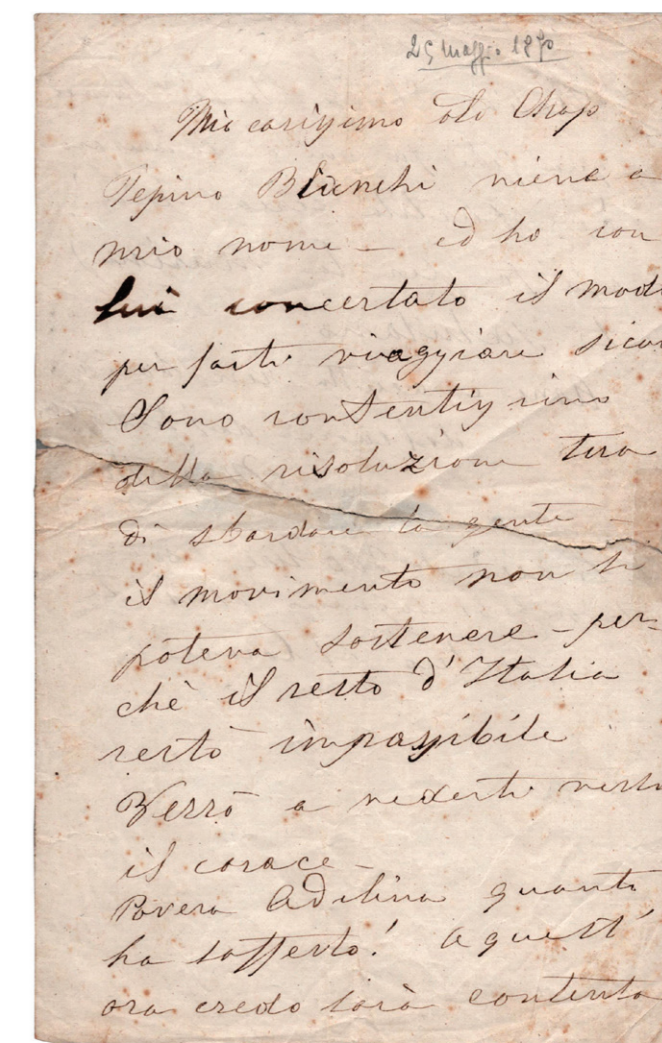 25 Maggio 1870
Mio carissimo Old Chap
Pepino Bianchi viene a
mio nome – ed ho con
lui concertato il modo
per farti viaggiare sicur
Sono contentissimo
della risoluzione tua
di sbandare la gente –
il movimento non si
poteva sostenere – per-
chè il resto d'Italia
restò impassibile
Verrò a vederti verso
il
Povera Adelina quanto
ha sofferto! a quest'
ora credo sarà contenta